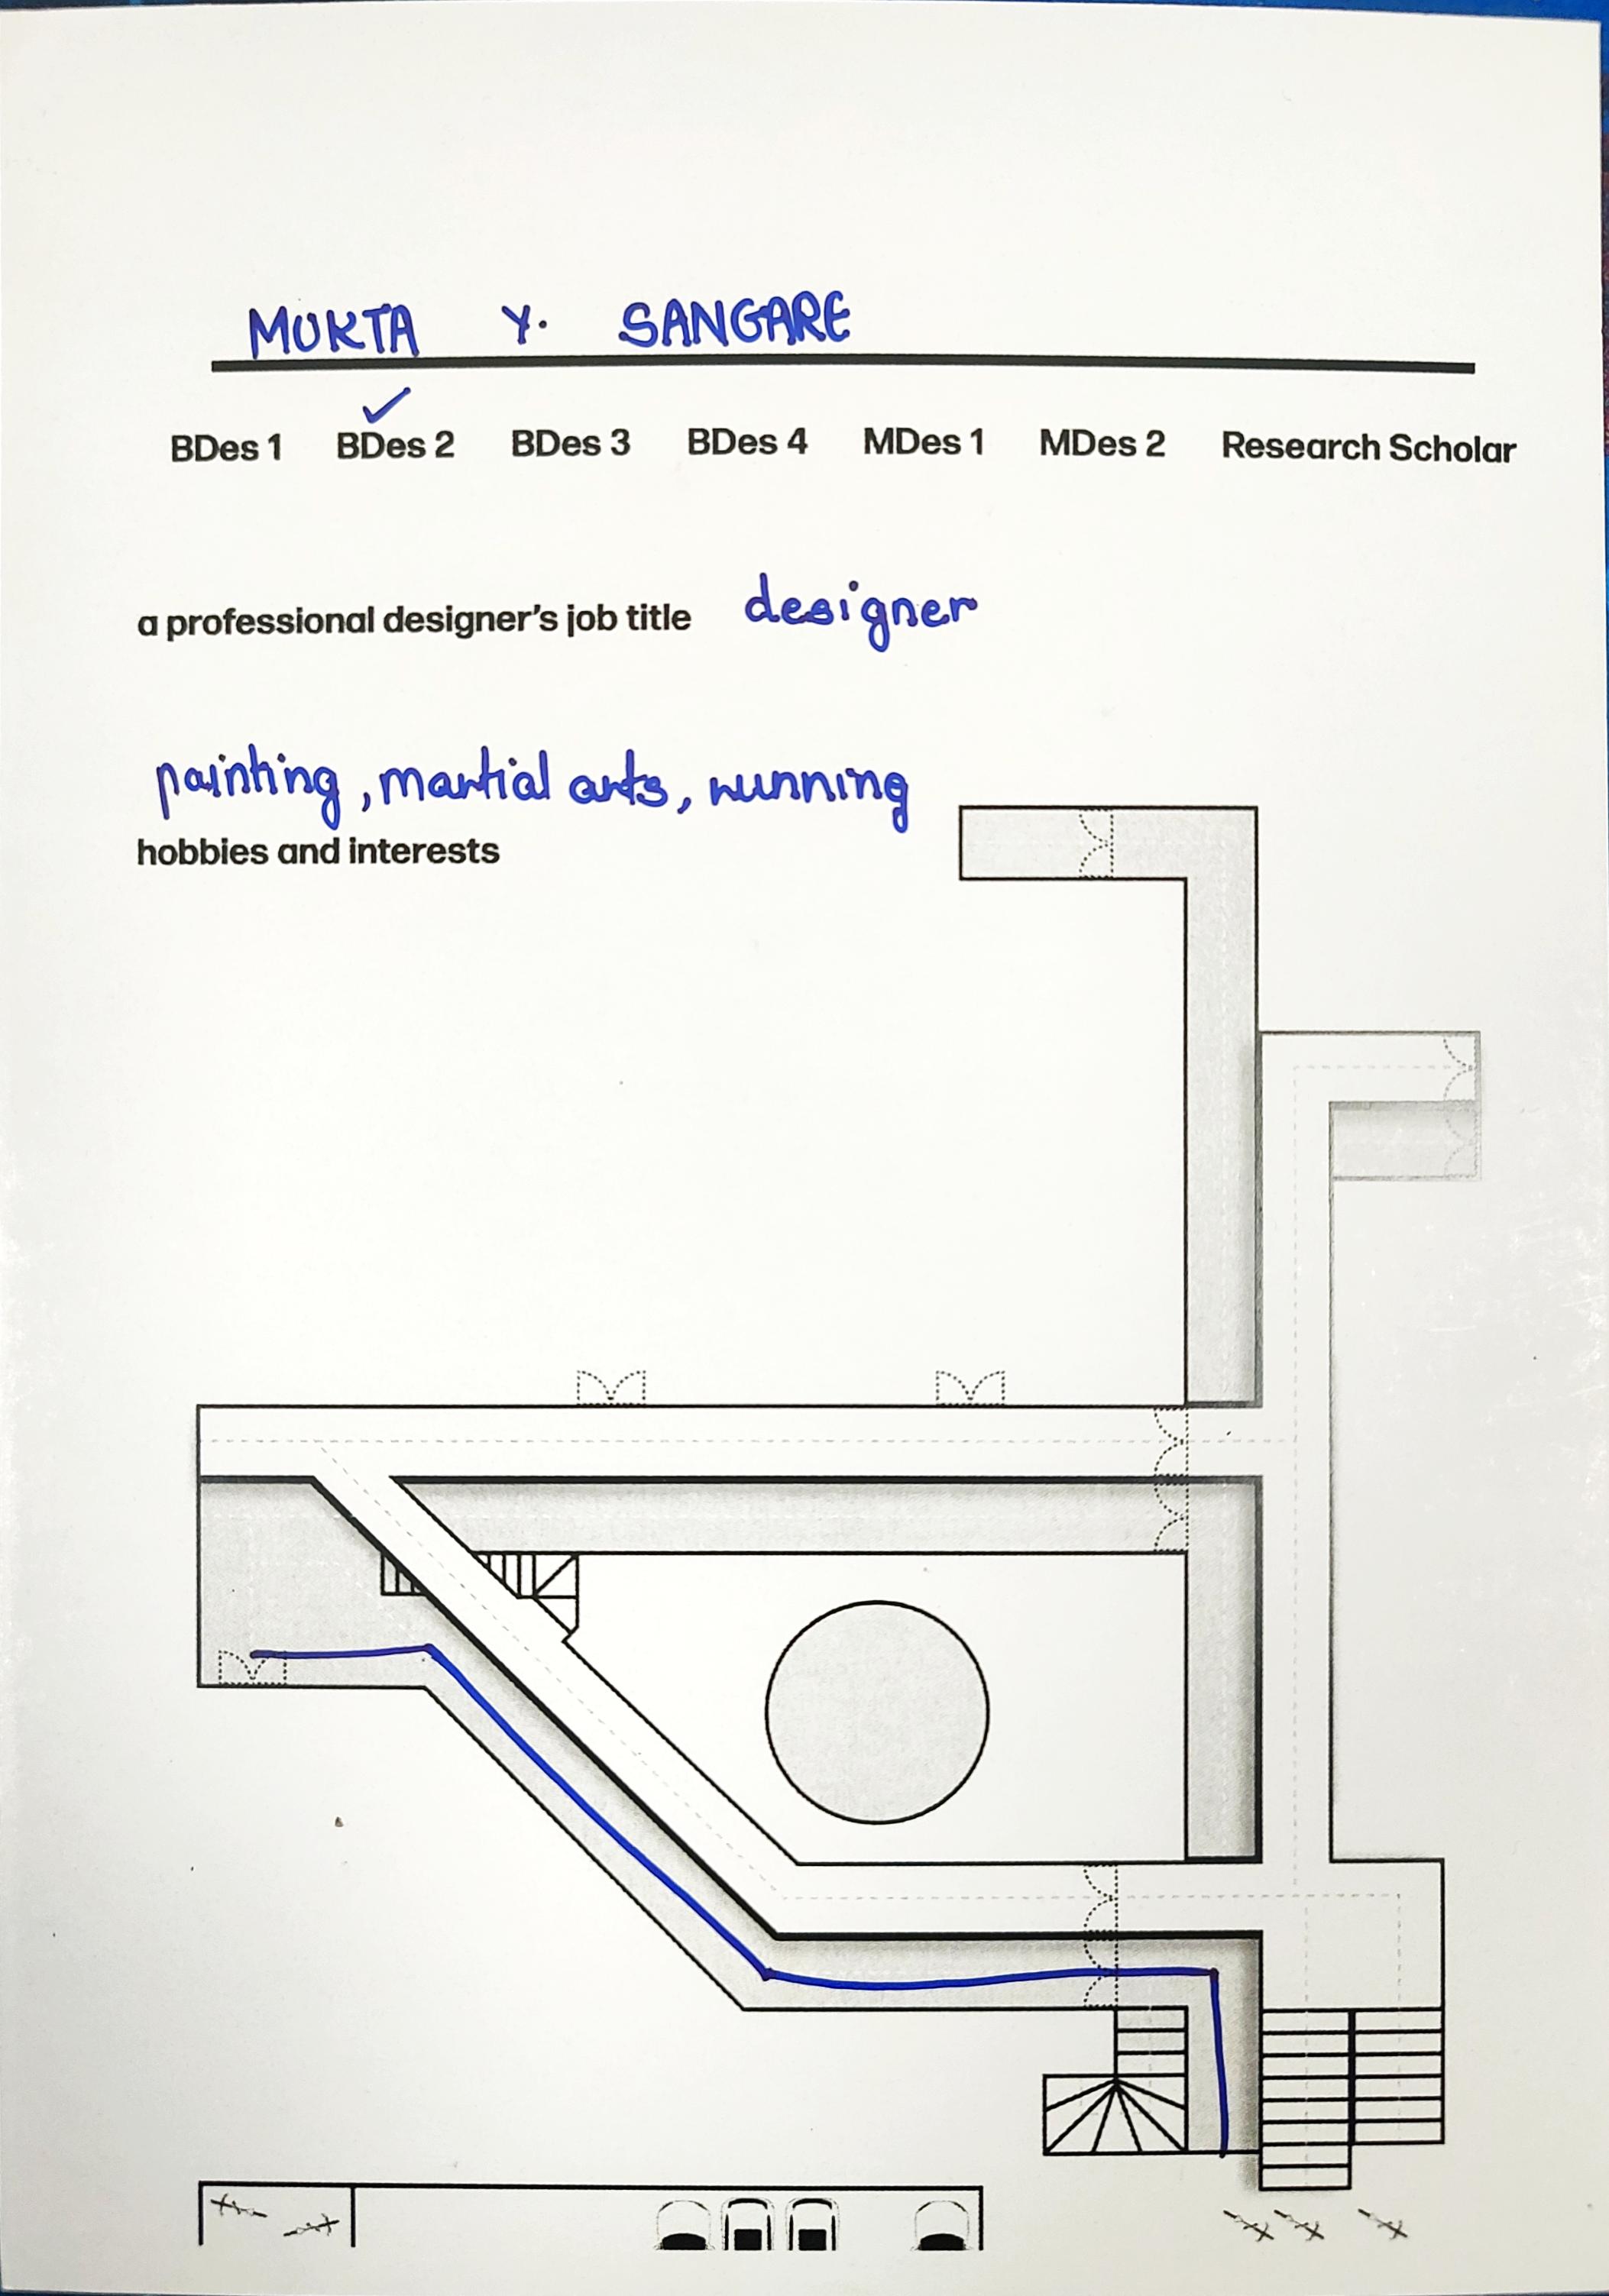 MUKTA Y. SANGARE
BDes 1 BDes 2 BDes 3 BDes 4 MDes 1 MDes 2 Research Scholar
a professional designer's job title designer
painting, martial arts, running
hobbies and interests